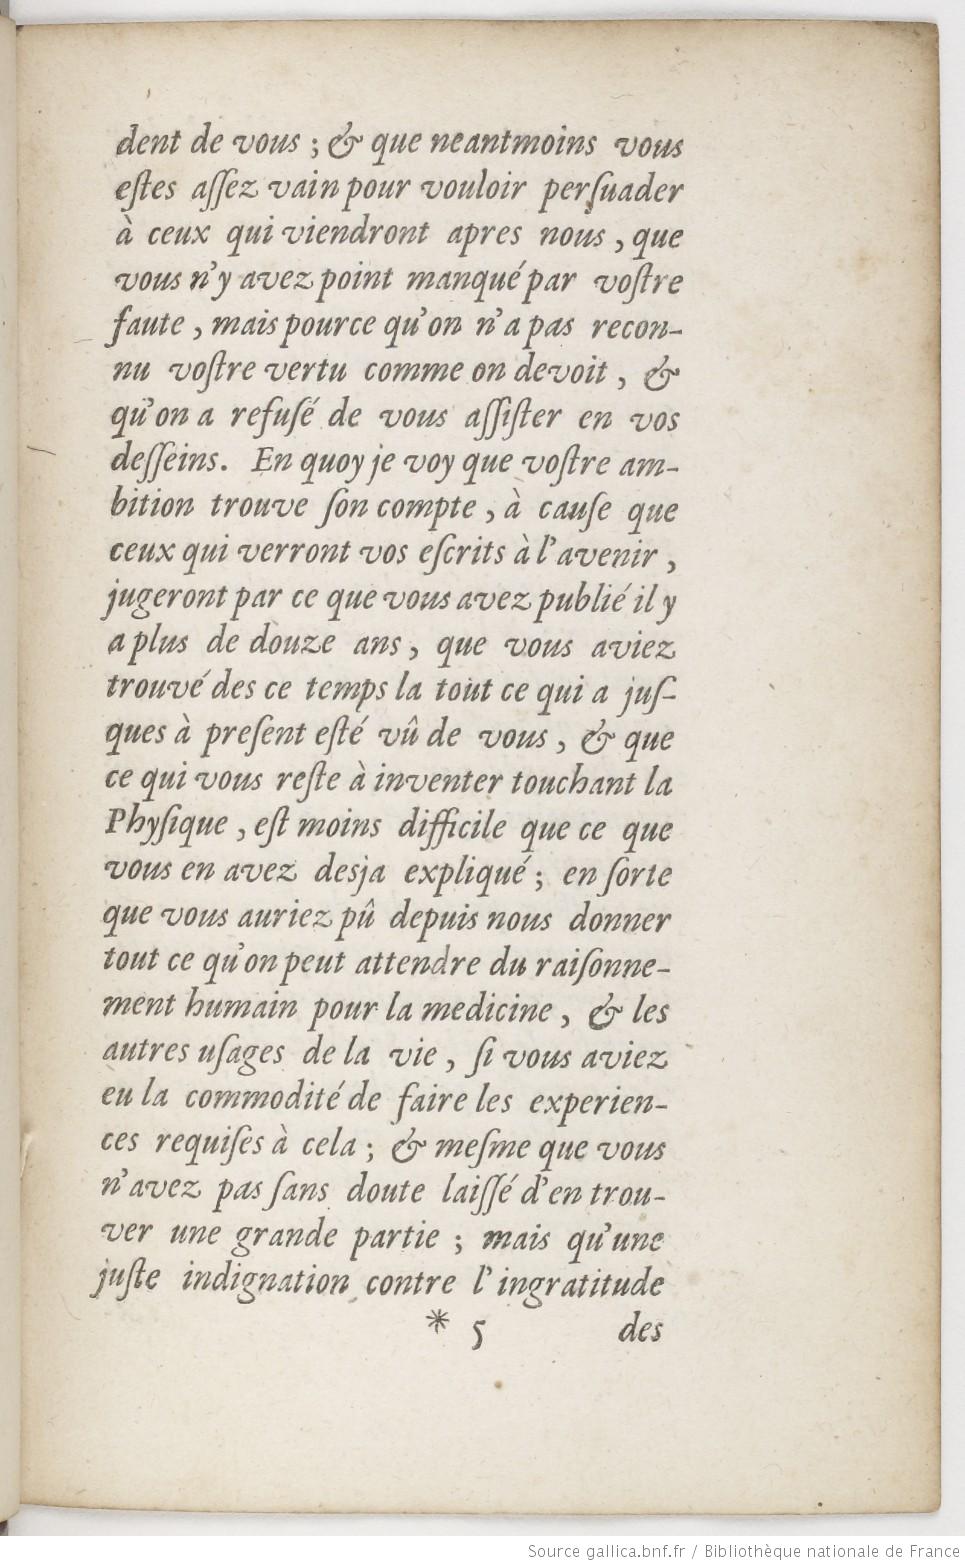 dent de vous ; & que neantmoins vous
eſtes aſſez vain pour vouloir perſuader
à ceux qui viendront apres nous , que
vous n'y avez point manqué par voſtre
faute , mais pource qu'on n'a pas recon-
nu voſtre vertu comme on devoit , &
qu'on a refuſé de vous aſſiſter en vos
deſſeins. En quoy je voy que voſtre am-
bition trouve ſon compte , à cauſe que
ceux qui verront vos eſcrits à l'avenir ,
jugeront par ce que vous avez publié il y
a plus de douze ans , que vous aviez
trouvé des ce temps la tout ce qui a juſ-
ques à preſent eſté vû de vous , & que
ce qui vous reſte à inventer touchant la
Phyſique , eſt moins difficile que ce que
vous en avez desja expliqué ; en ſorte
que vous auriez pû depuis nous donner
tout ce qu'on peut attendre du raiſonne-
ment humain pour la medicine , & les
autres uſages de la vie , ſi vous aviez
eu la commodité de faire les experien-
ces requiſes à cela ; & meſme que vous
n'avez pas ſans doute laiſſé d'en trou-
ver une grande partie ; mais qu'une
juſte indignation contre l'ingratitude
* 5 des
Source gallica.bnf.fr / Bibliothèque nationale de France